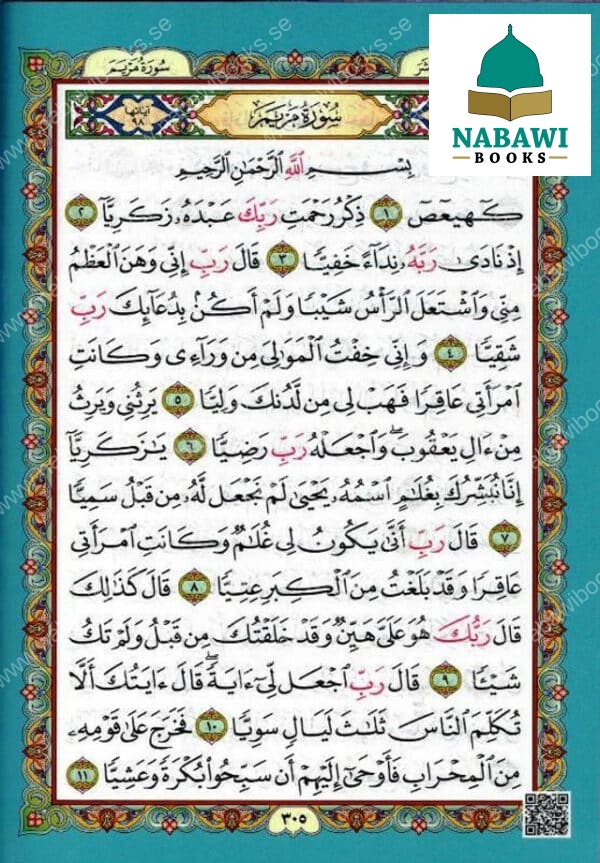 سُورَةُ مَرْيَمَ
NABAWI
BOOKS
آيَاتُهَا
٩٨
سُورَةُ مَرْيَمَ
بِسْمِ ٱللَّهِ ٱلرَّحْمَٰنِ ٱلرَّحِيمِ
كٓهيعٓصٓ ١ ذِكْرُ رَحْمَتِ رَبِّكَ عَبْدَهُۥ زَكَرِيَّآ ٢
إِذْ نَادَىٰ رَبَّهُۥ نِدَآءً خَفِيًّا ٣ قَالَ رَبِّ إِنِّى وَهَنَ ٱلْعَظْمُ
مِنِّى وَٱشْتَعَلَ ٱلرَّأْسُ شَيْبًا وَلَمْ أَكُنۢ بِدُعَآئِكَ رَبِّ
شَقِيًّا ٤ وَإِنِّى خِفْتُ ٱلْمَوَٰلِىَ مِن وَرَآءِى وَكَانَتِ
ٱمْرَأَتِى عَاقِرًا فَهَبْ لِى مِن لَّدُنكَ وَلِيًّا ٥ يَرِثُنِى وَيَرِثُ
مِنْ ءَالِ يَعْقُوبَ ۖ وَٱجْعَلْهُ رَبِّ رَضِيًّا ٦ يَٰزَكَرِيَّآ
إِنَّا نُبَشِّرُكَ بِغُلَٰمٍ ٱسْمُهُۥ يَحْيَىٰ لَمْ نَجْعَل لَّهُۥ مِن قَبْلُ سَمِيًّا
٧ قَالَ رَبِّ أَنَّىٰ يَكُونُ لِى غُلَٰمٌ وَكَانَتِ ٱمْرَأَتِى
عَاقِرًا وَقَدْ بَلَغْتُ مِنَ ٱلْكِبَرِ عِتِيًّا ٨ قَالَ كَذَٰلِكَ
قَالَ رَبُّكَ هُوَ عَلَىَّ هَيِّنٌ وَقَدْ خَلَقْتُكَ مِن قَبْلُ وَلَمْ تَكُ
شَيْـًٔا ٩ قَالَ رَبِّ ٱجْعَل لِّىٓ ءَايَةً ۚ قَالَ ءَايَتُكَ أَلَّا
تُكَلِّمَ ٱلنَّاسَ ثَلَٰثَ لَيَالٍ سَوِيًّا ١٠ فَخَرَجَ عَلَىٰ قَوْمِهِۦ
مِنَ ٱلْمِحْرَابِ فَأَوْحَىٰٓ إِلَيْهِمْ أَن سَبِّحُوا۟ بُكْرَةً وَعَشِيًّا ١١
٣٠٥